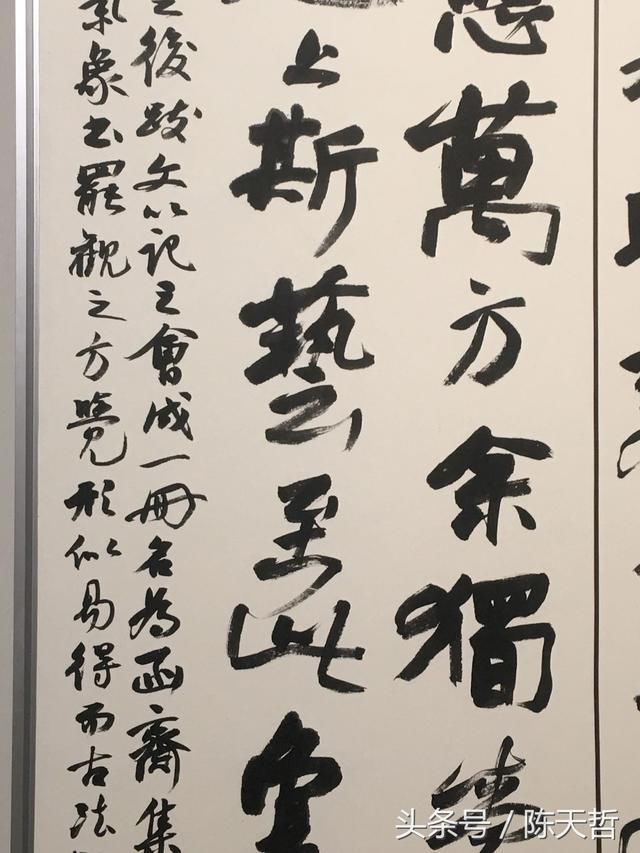 萬方余獨
上斯藝至此
後跋文以記之會成一冊名為函齋集
氣象書罷觀之方覺形似易得而古法
头条号 / 陈天哲